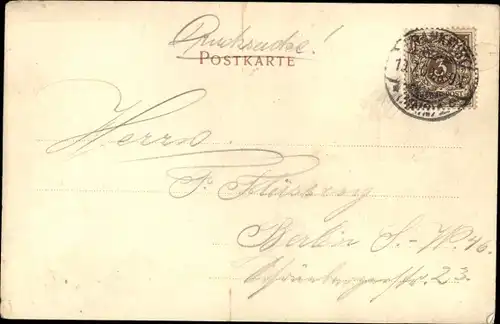 Drucksache!
POSTKARTE
3
Herrn
P. Flüssing
Berlin S.-W. 46.
Schönebergerstr. 23.